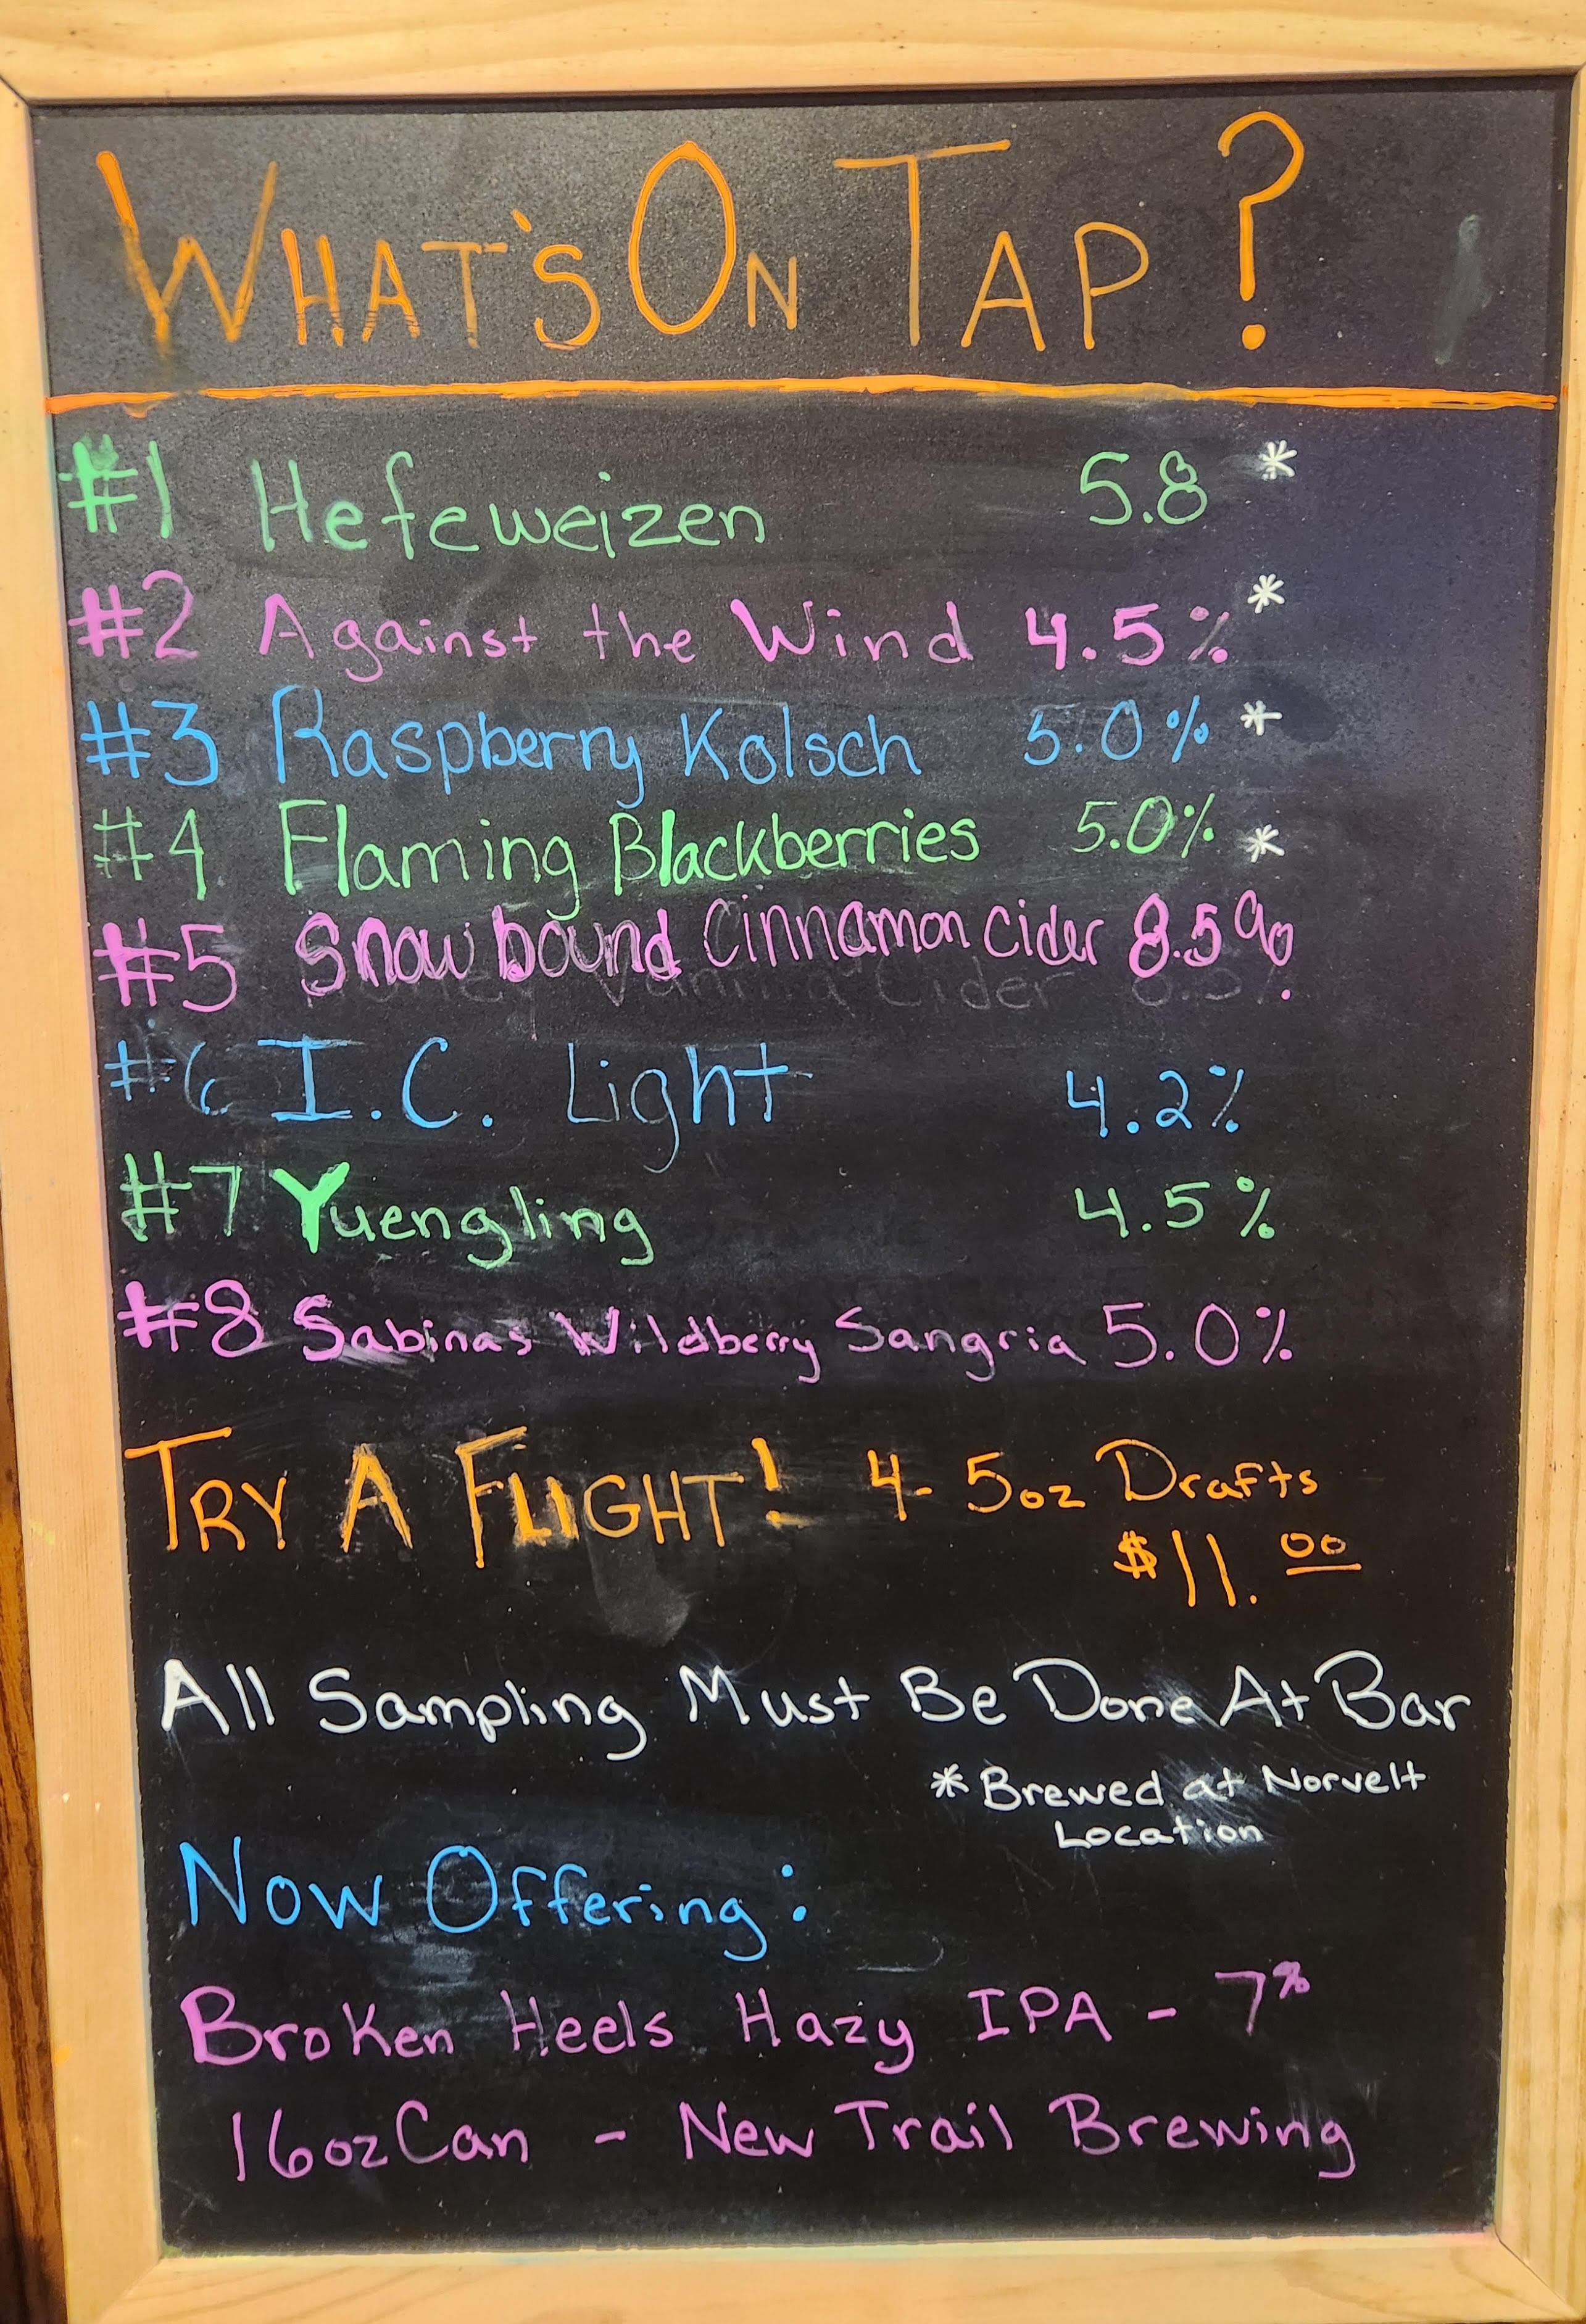 WHAT'S ON TAP ?
#1 Hefeweizen 5.8 *
#2 Against the Wind 4.5% *
#3 Raspberry Kolsch 5.0% *
#4 Flaming Blackberries 5.0% *
#5 Snow bound Cinnamon Cider 8.5%
Vanilla Cider 8.5%
#6 I.C. Light 4.2%
#7 Yuengling 4.5%
#8 Sabinas Wildberry Sangria 5.0%
TRY A FLIGHT! 4- 5oz Drafts
$11.00
All Sampling Must Be Done At Bar
* Brewed at Norvelt
Location
Now Offering:
Broken Heels Hazy IPA - 7%
16oz Can - New Trail Brewing